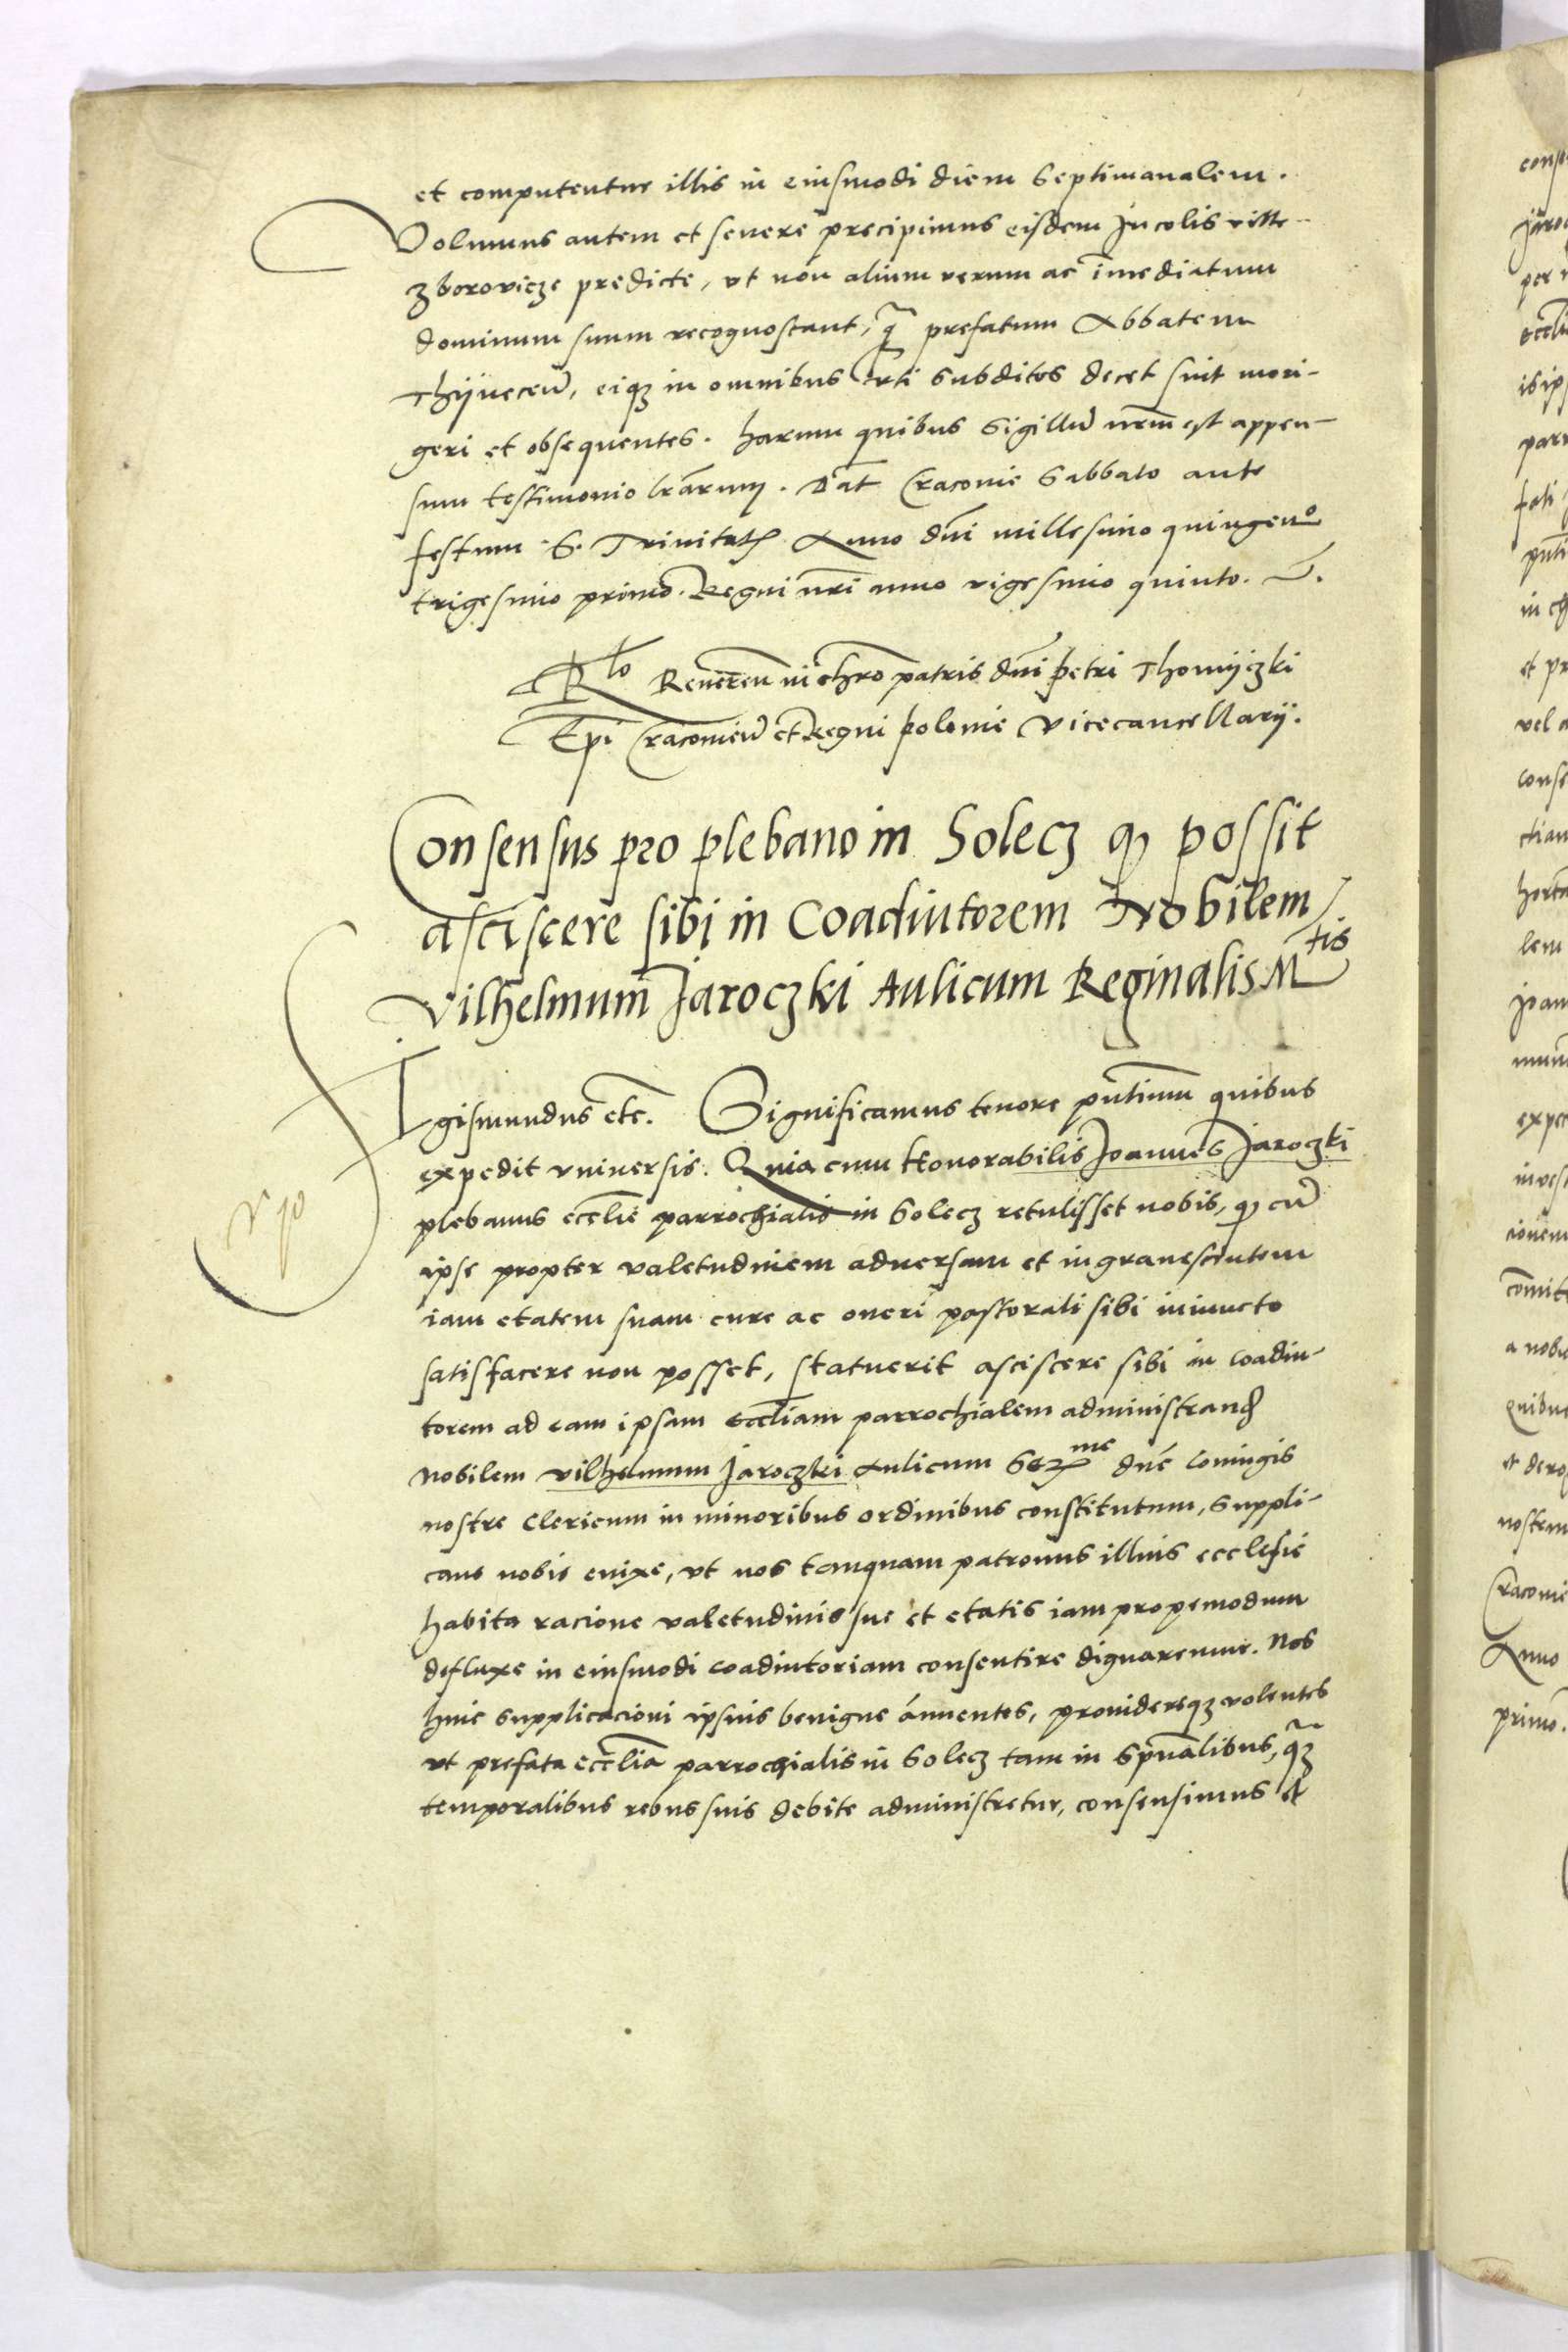 et computentur illis in eiusmodi diem Septimanalem.
Volumus autem et severe precipimus eisdem Incolis ville
zborovicze predicte, vt non alium verum ac imediatum
dominum suum recognoscant, q̃ prefatum Abbatem
Thijnecen̄, eiqz in omnibus vti subditos decet sint mori-
geri et obsequentes. harum quibus Sigillū nrm̄ est appen-
sum testimonio lrārum. Dat̄ Cracovie Sabbato ante
festum S. Trinitatis Anno dn̄i millesimo quingenᵒ
trigesimo primo. Regni nrī anno vigesimo quinto.
Rlo Reveren̄ in chrō patris dn̄i petri Thomijczki
Epī Cracovien̄ et Regni polonie Vicecancellarij.
Consensus pro plebano in Solecz qz possit
asciscere sibi in Coadiutorem Nobilem
Vilhelmum Jaroczki Aulicum Reginalis Mtis
Sigismundus etc. Significamus tenore pn̄tium quibus
expedit vniversis. Quia cum Honorabilis Joannes Jaroczki
plebanus eccl̄ie parrochialis in Solecz retulisset nobis, qz cū
ipse propter valetudinem adversam et ingravescentem
iam etatem suam cure ac oneri pastorali sibi iniuncto
satisfacere non posset, statuerit asciscere sibi in coadiu-
torem ad eam ipsam eccl̄iam parrochialem administrand
nobilem vilhelmum Jaroczki Aulicum Serme dn̄e Coniugis
nostre Clericum in minoribus ordinibus constitutum, Suppli-
cans nobis enixe, vt nos tanquam patronus illius ecclesie
habita racione valetudinis sue et etatis iam propemodum
defluxe in eiusmodi coadiutoriam consentire dignaremur. Nos
huic supplicacioni ipsius benigne annuentes, providereqz volentes
vt prefata eccl̄ia parrochialis in Solecz tam in Spūalibus, qz̃
temporalibus rebus suis debite administretur, consensimus et